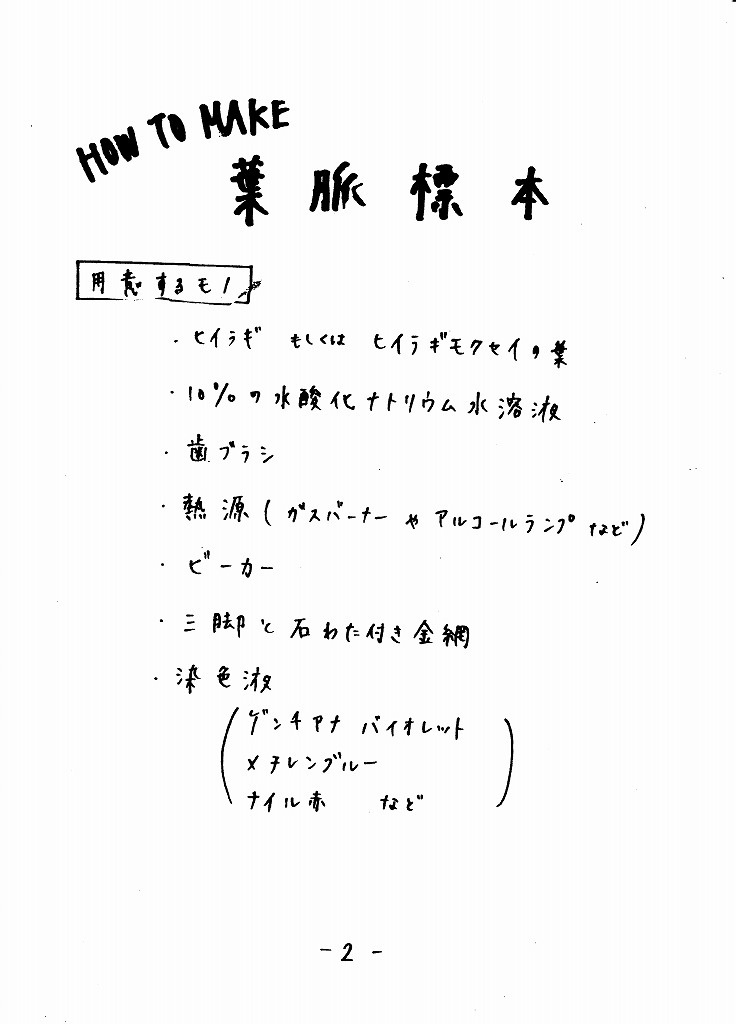 HOW TO MAKE
葉脈標本
用意するモノ
・ヒイラギ もしくは ヒイラギモクセイの葉
・10%の水酸化ナトリウム水溶液
・歯ブラシ
・熱源(ガスバーナーやアルコールランプなど)
・ビーカー
・三脚と石わた付き金網
・染色液
(ゲンチアナ バイオレット
メチレンブルー
ナイル赤 など)
-2-